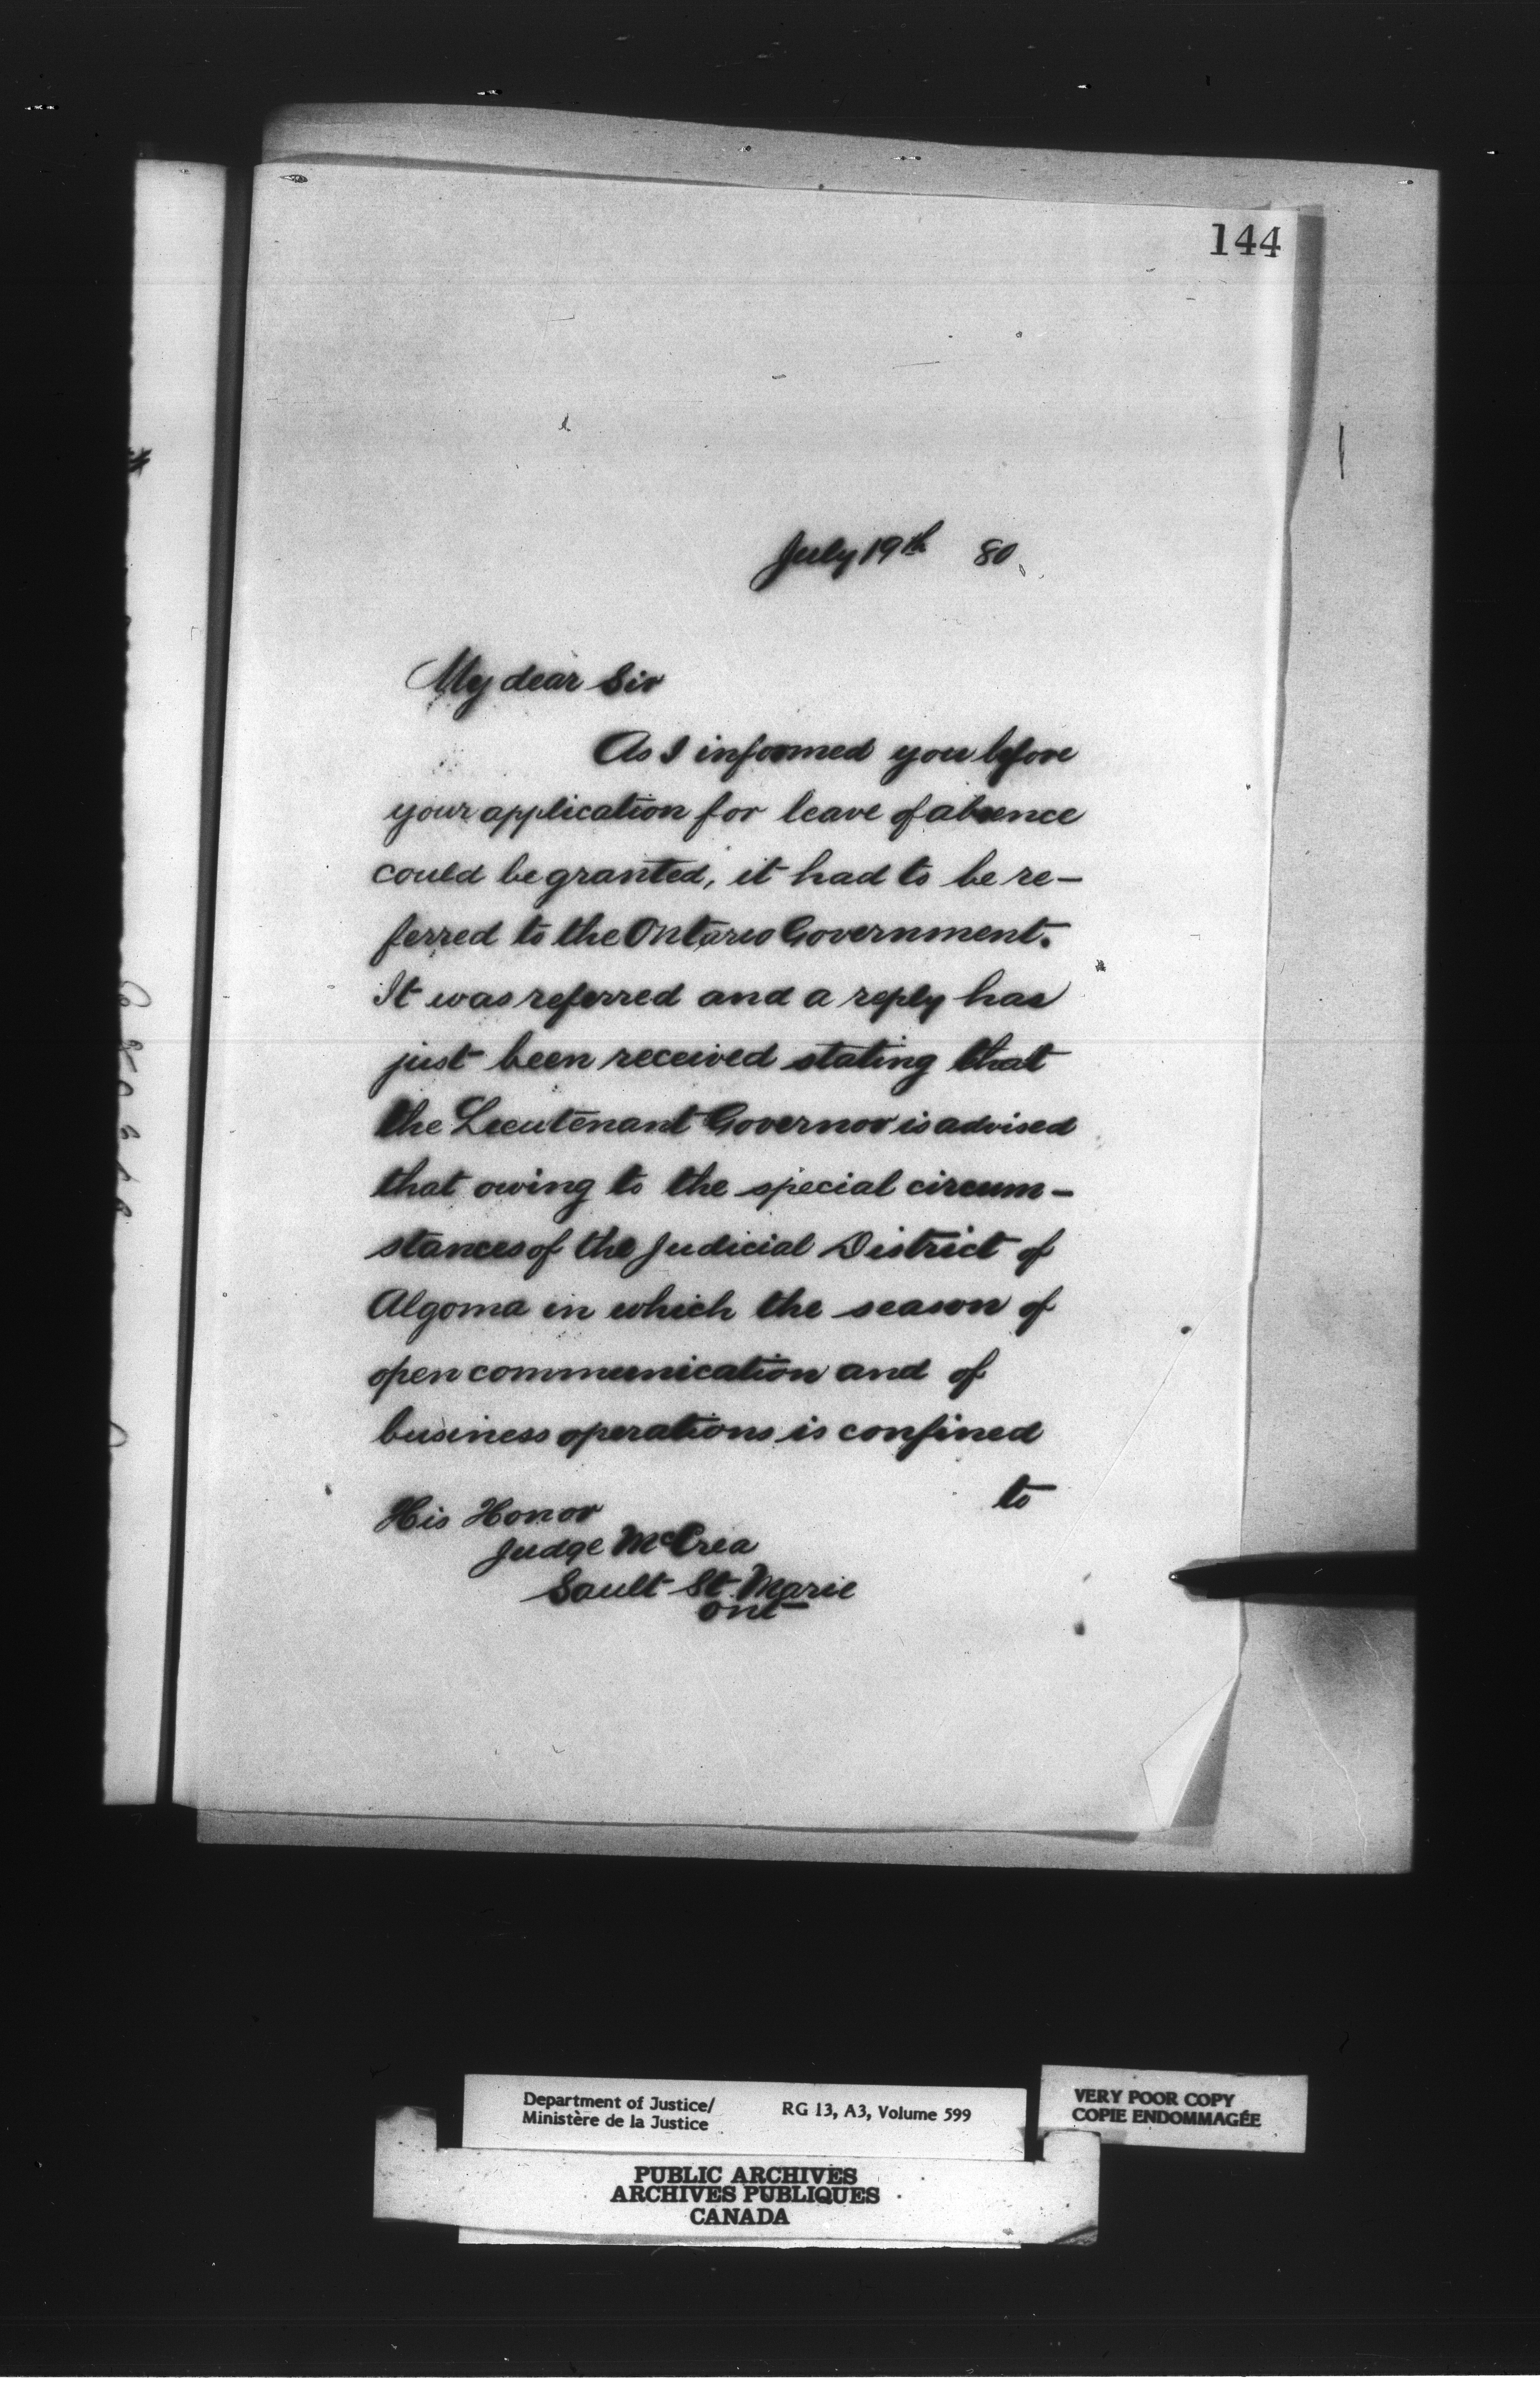 144
July 19th 80
My dear Sir
As I informed you before
your application for leave of absence
could be granted, it had to be re-
ferred to the Ontario Government.
It was referred and a reply has
just been received stating that
the Lieutenant Governor is advised
that owing to the special circum-
stances of the Judicial District of
Algoma in which the season of
open communication and of
business operations is confined
to
His Honor
Judge McCrea
Sault St. Marie
Ont
Department of Justice/
Ministère de la Justice
RG 13, A3, Volume 599
VERY POOR COPY
COPIE ENDOMMAGÉE
PUBLIC ARCHIVES
ARCHIVES PUBLIQUES
CANADA